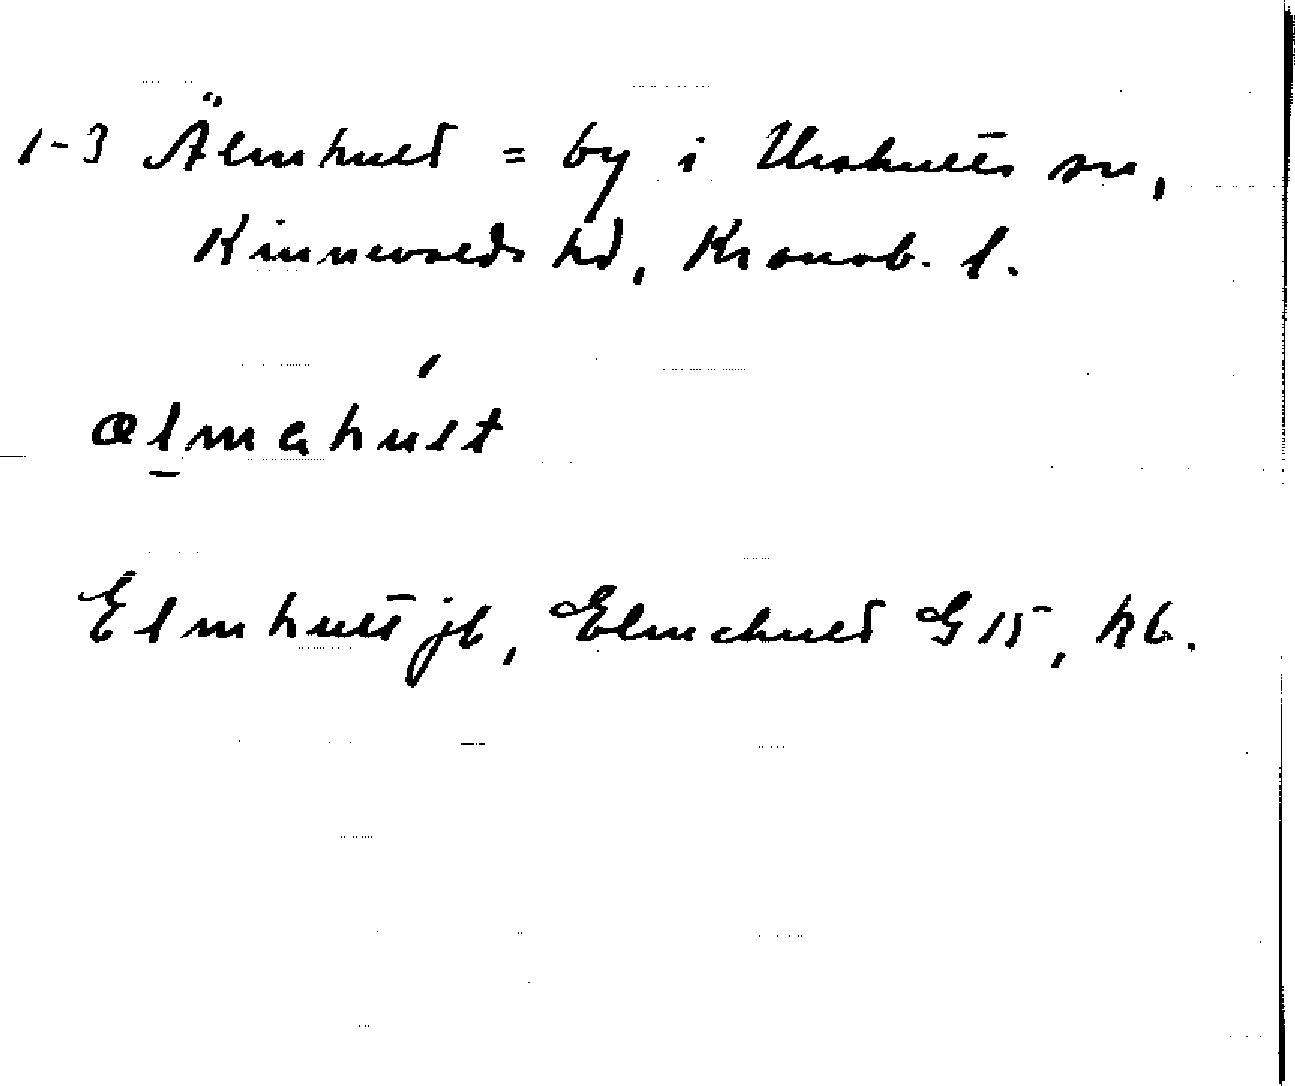 1-3 Älmhult = by i Urshults sn,
Kinnevalds hd, Kronob. l.
ælmahult
Elmhult jb, Elmehult G 15, hb.